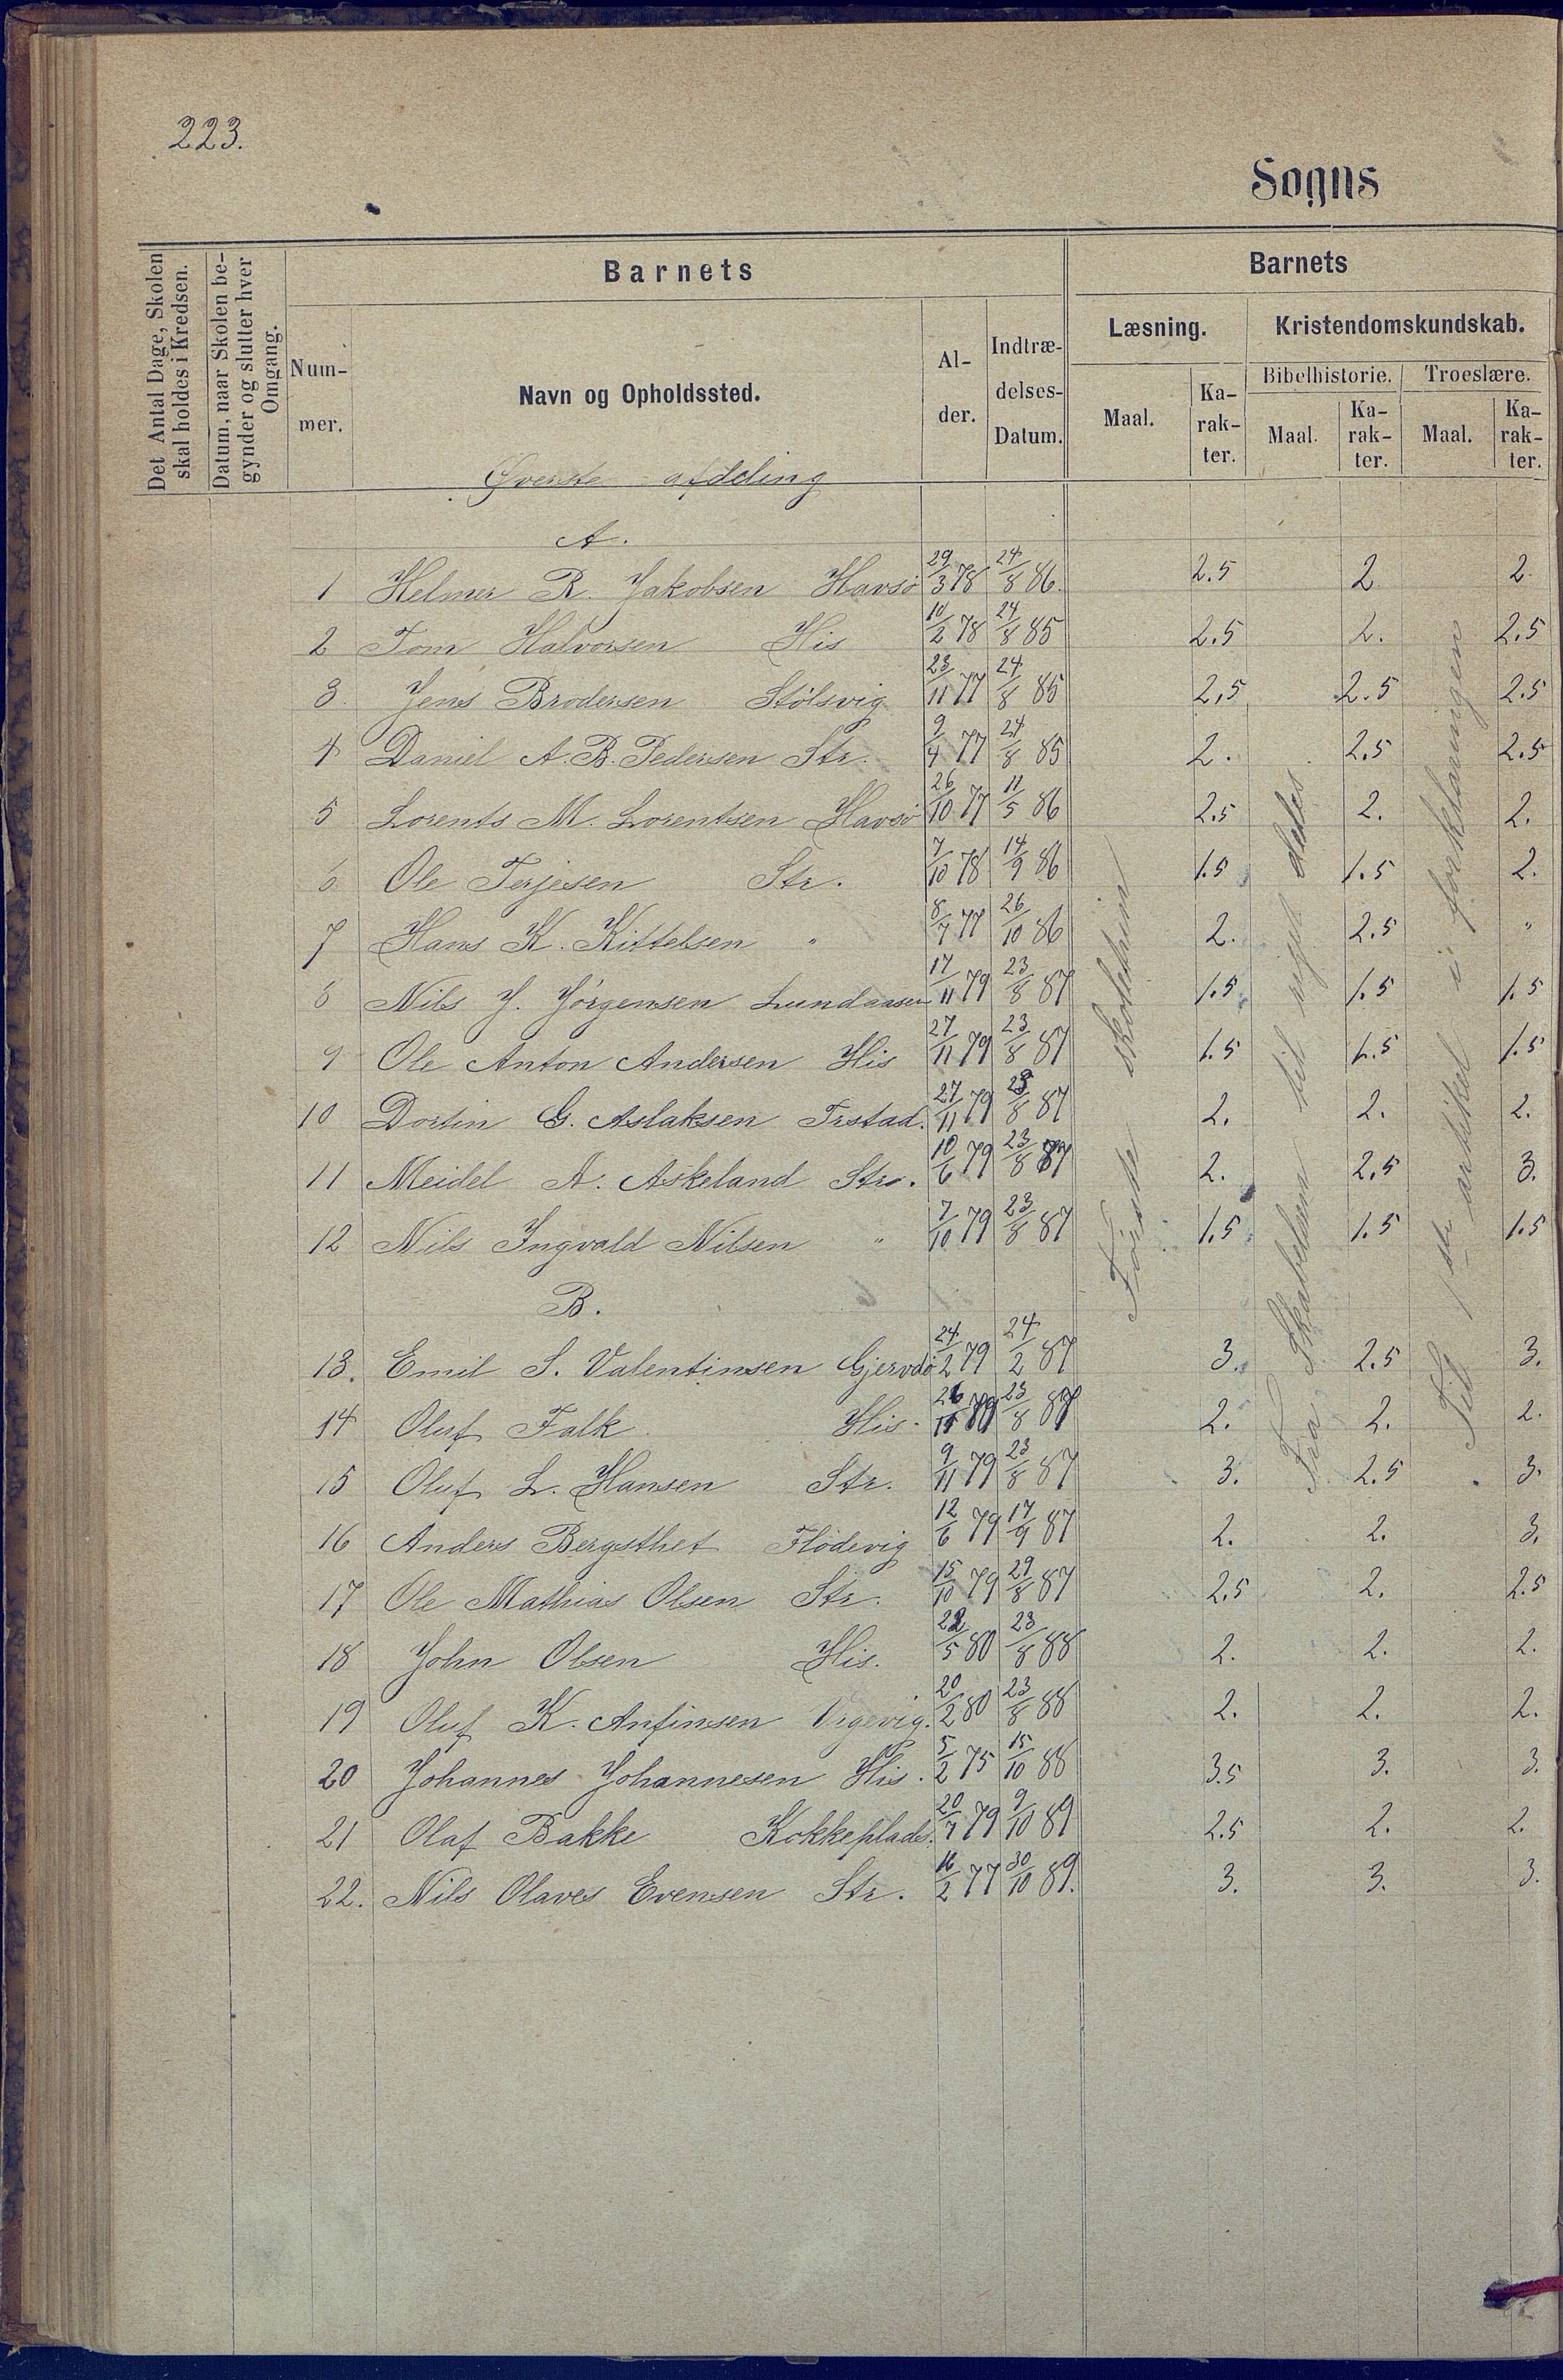 223.
Sogns
Det Antal Dage, Skolen
skal holdes i Kredsen.
Datum, naar Skolen be-
gynder og slutter hver
Omgang.
Barnets
Num-
mer.
Navn og Opholdssted.
Al-
der.
Indtræ-
delses-
Datum.
Barnets
Læsning.
Maal.
Ka-
rak-
ter.
Kristendomskundskab.
Bibelhistorie.
Maal.
Ka-
rak-
ter.
Troeslære.
Maal.
Ka-
rak-
ter.
Øverste afdeling
A.
1 Helmer R. Jakobsen Havsø 29/3 78 24/8 86. 2.5 2 2.
2 Tom Halvorsen His 10/2 78 24/8 85 2.5 2. 2.5
3 Jens Brodersen Stølsvig 23/11 77 24/8 85 2,5 2.5 2.5
4 Daniel A. B. Pedersen Str. 9/4 77 24/8 85 2. 2.5 2.5
5 Lorents M. Lorentsen Havsø 26/10 77 11/5 86 2.5 2. 2.
6 Ole Terjesen Str. 7/10 78 14/9 86 1.5 1.5 2.
7 Hans K. Kittelsen " 8/7 77 26/10 86 2. 2.5 "
8 Nils J. Jørgensen Lundaasen 17/11 79 23/8 87 1.5 1.5 1.5
9 Ole Anton Andersen His 27/11 79 23/8 87 1.5 1.5 1.5
10 Dortin G. Aslaksen Trstad. 27/11 79 23/8 87 2. 2. 2.
11 Meidel A. Askeland Str. 10/6 79 23/8 87 2. 2,5 3.
12 Nils Ingvald Nilsen " 7/10 79 23/8 87 1.5 1.5 1.5
B.
13. Emil S. Valentinsen Gjervdø 24/2 79 24/2 87 3. 2.5 3.
14 Oluf Falk His. 23/8 87 2. 2. 2.
15 Oluf L. Hansen Str. 9/11 79 23/8 87 3. 2.5 3.
16 Anders Bergsthet Flødevig 12/6 79 17/9 87 2. 2. 3.
17 Ole Mathias Olsen Str. 15/10 79 29/8 87 2.5 2. 2.5
18 John Olsen His. 22/5 80 23/8 88 2. 2. 2.
19 Oluf K. Anfinsen Vrgevig. 20/2 80 23/8 88 2. 2. 2.
20 Johannes Johannesen His. 5/2 75 15/10 88 3.5 3. 3.
21 Olaf Bakke Kokkeplads. 20/7 79 9/10 89 2.5 2. 2.
22. Nils Olaves Evensen Str. 16/2 77 30/10 89. 3. 3. 3.
Første skoletrin
Fra Skabelsen til rigets deles
Til 1ste artikel i forklaringen